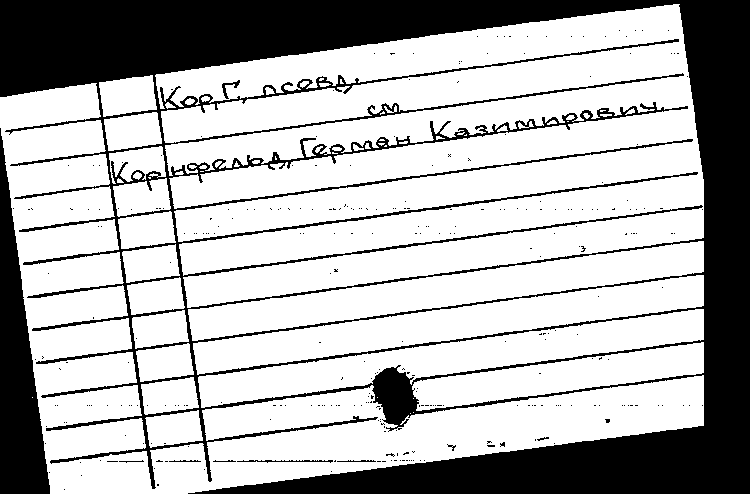 Кор, Г., псевд.
см.
Корнфельд, Герман Казимирович.